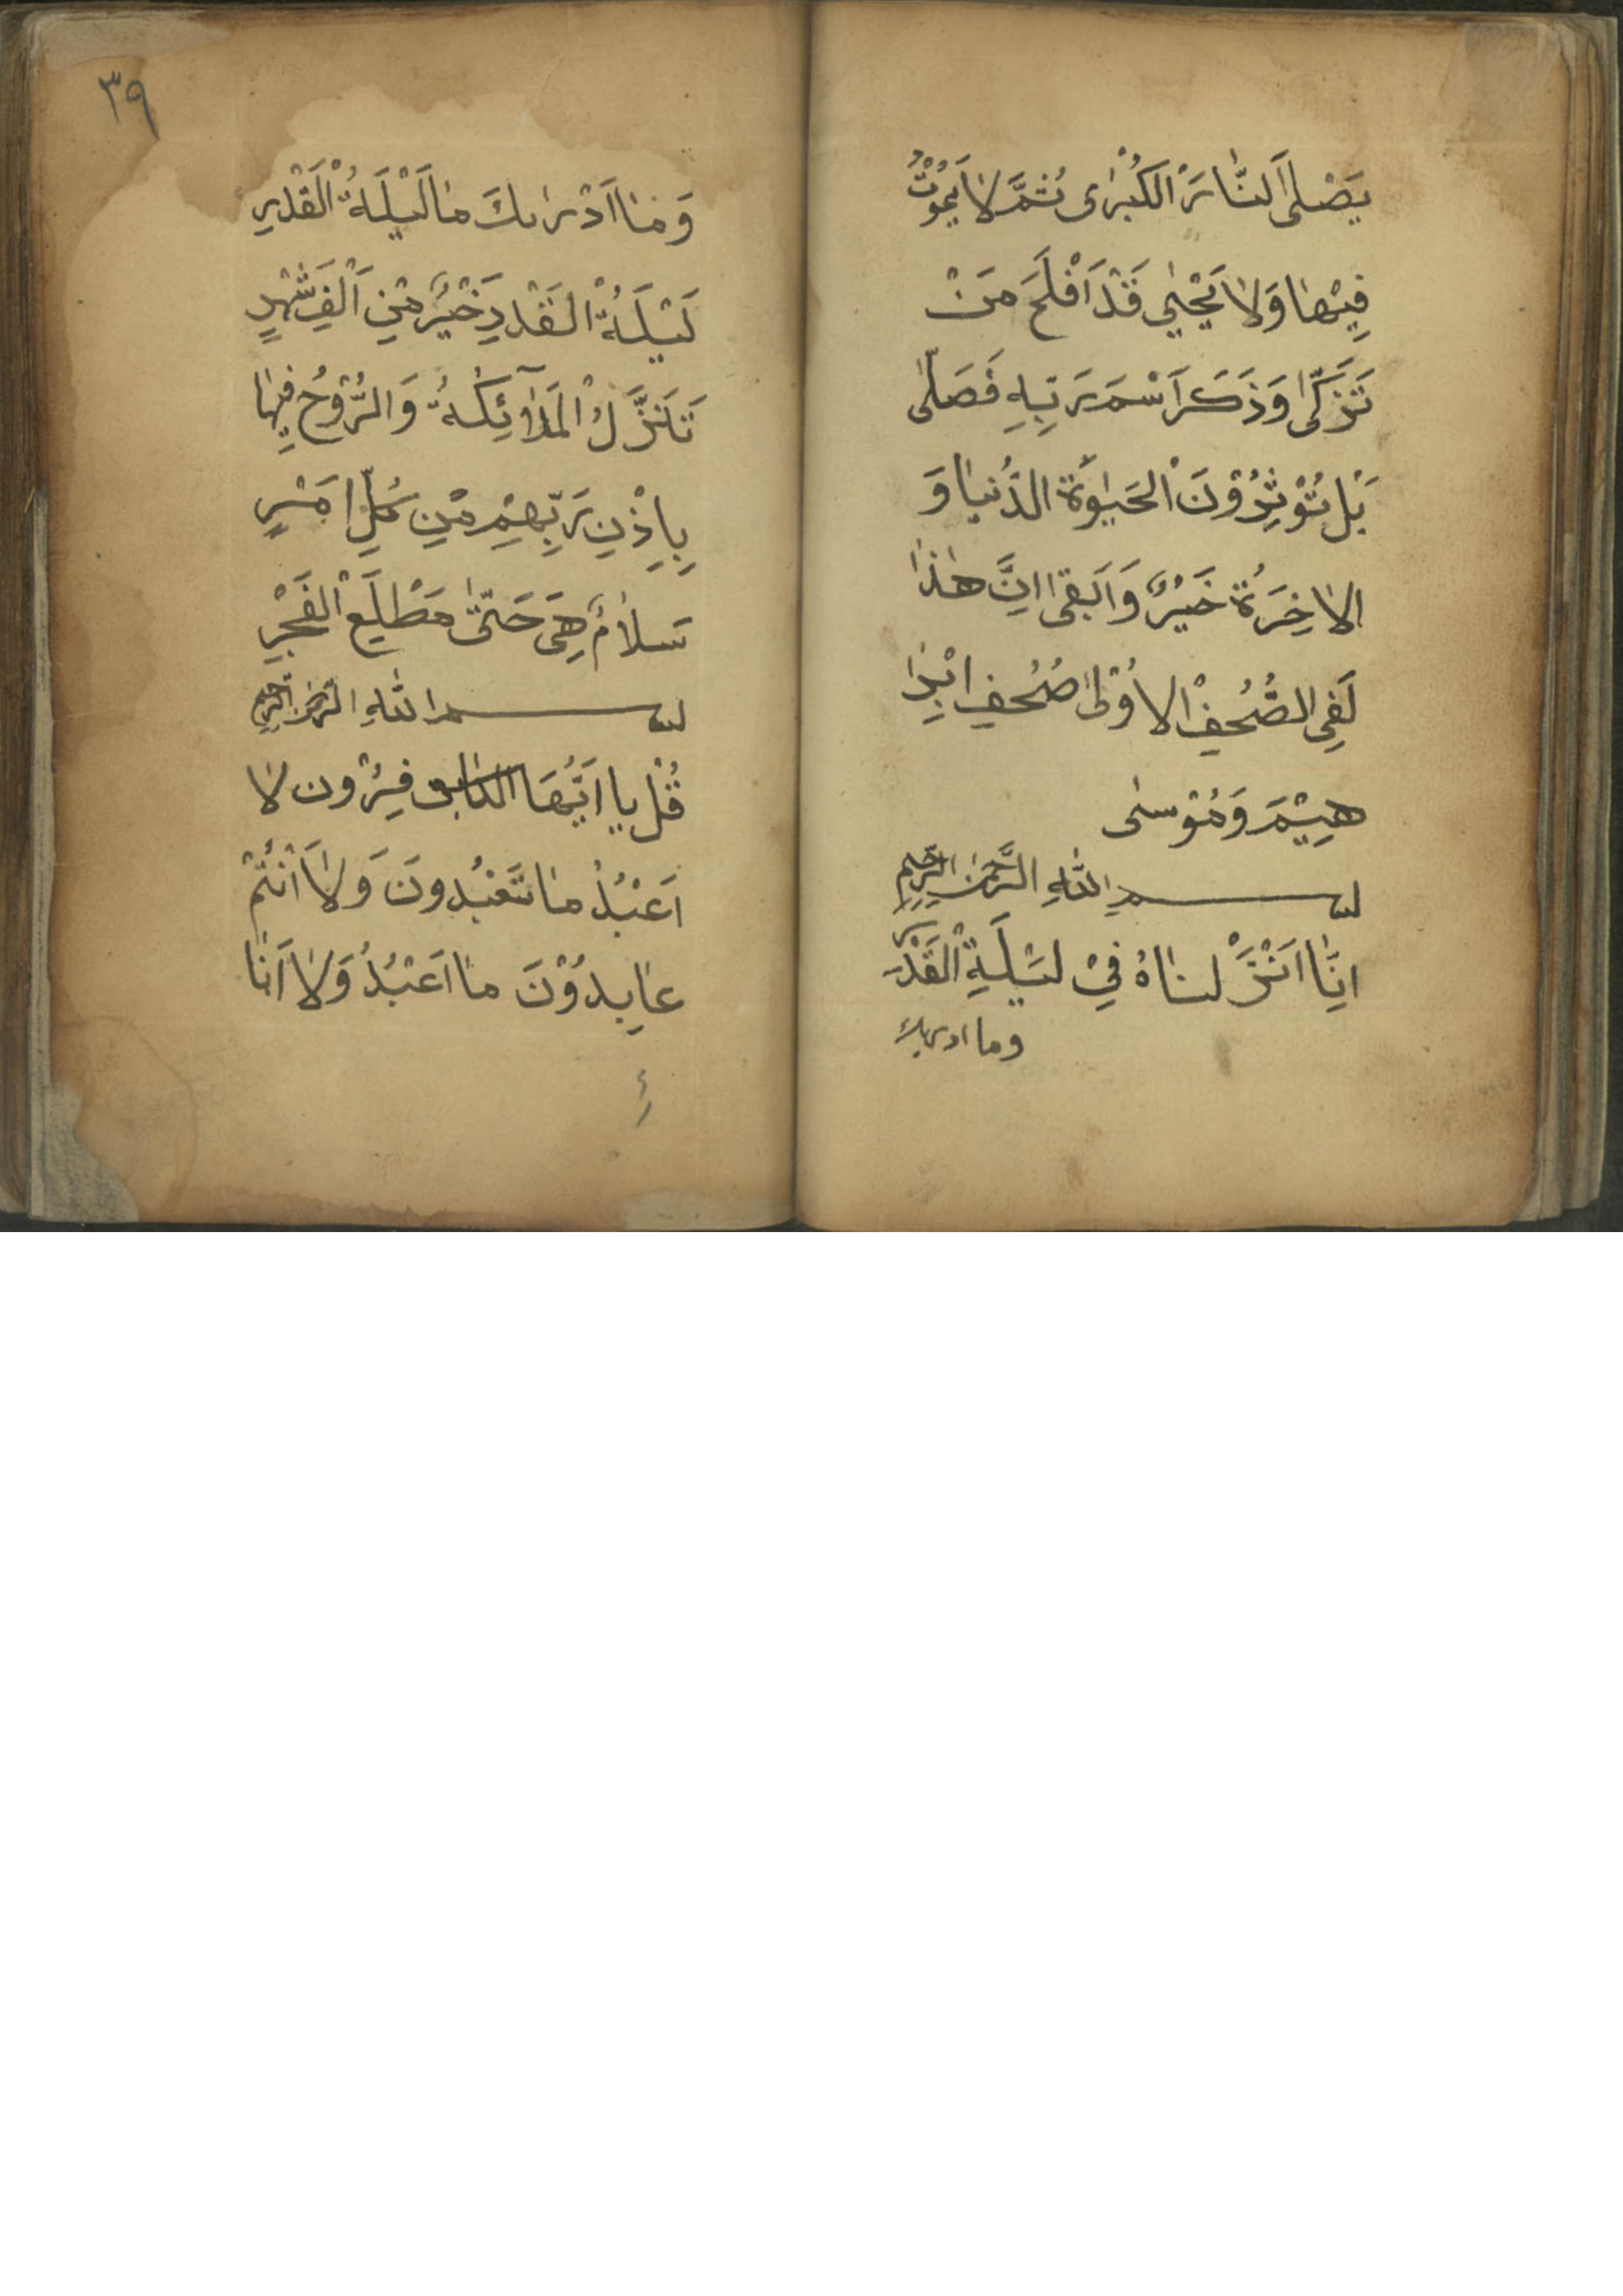 يَصْلَى النَّارَ الْكُبْرٰى ثُمَّ لَا يَمُوْتُ
فِيْهَا وَلَا يَحْيٰى قَدْ اَفْلَحَ مَنْ
تَزَكّٰى وَذَكَرَ اسْمَ رَبِّهِ فَصَلّٰى
بَلْ تُؤْثِرُوْنَ الْحَيٰوةَ الدُّنْيَا وَ
الاخِرَةُ خَيْرٌ وَاَبقىٰ اِنَّ هٰذَا
لَفِى الصُّحُفِ الاُوْلىٰ صُحُفِ اِبْرٰا
هِيْمَ وَمُوْسىٰ
بسم اللهِ الرَّحْمٰنِ الرَّحِيمِ
اِنَّا اَنْزَلْنَاهُ فِيْ لَيْلَةِ الْقَدْرِ
وما ادريك
٣٩
وَمَا اَدْرٰيكَ مَا لَيْلَةُ الْقَدْرِ
لَيْلَةُ الْقَدْرِ خَيْرٌ مِنْ اَلْفِ شَهْرٍ
تَنَزَّلُ الْمَلٰۤائِكَةُ وَالرُّوْحُ فِيهَا
بِاِذْنِ رَبِّهِمْ مِنْ كُلِّ اَمْرٍ
سَلَامٌ هِىَ حَتّٰى مَطْلَعِ الْفَجْرِ
بسم اللهِ الرَّحْمٰنِ الرَّحِيمِ
قُلْ يا اَيُّهَا الكا فِرُون لا
اَعْبُدُ مَا تَعْبُدُونَ وَلا اَنْتُمْ
عَابِدُوْنَ ما اَعْبُدُ وَلا اَنَا